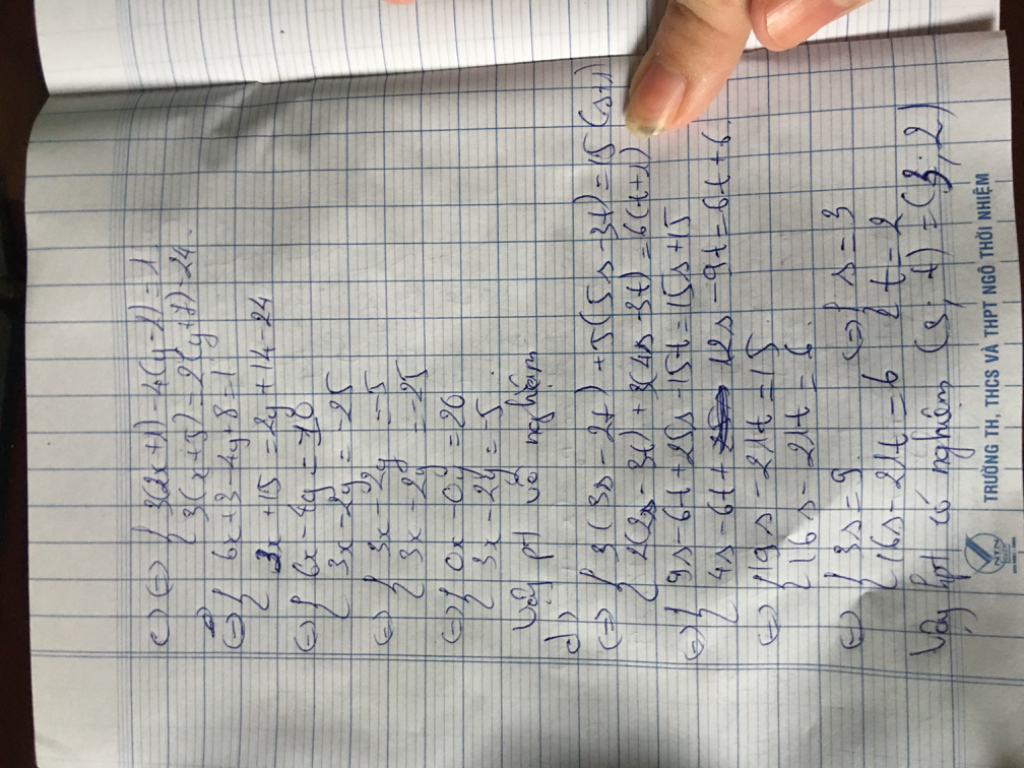 c) (=) { 3(2x+1) - 4(y-2) = 1
3(x+5) = 2(y+7) - 24.
(=) { 6x+3-4y+8=1
3x+15=2y+14-24
(=) { 6x-4y=-10
3x-2y=-25
(=) { 3x-2y=-5
3x-2y=-25
(=) { 0x-0y=20
3x-2y=-5
Vậy pt vô nghiệm
d)
(=) { 3(3s-2t)+5(5s-3t)=15(s+1)
2(2s-3t)+3(4s-3t)=6(t+1)
(=) { 9s-6t+25s-15t=15s+15
4s-6t+12s-9t=6t+6.
(=) { 19s-21t=15
16s-21t=6.
(=) { 3s=9
16s-21t=6 (=) { s=3
t=2
Vậy hpt có nghiệm (s; t)=(3; 2)
NTN
TRƯỜNG TH, THCS VÀ THPT NGÔ THỜI NHIỆM